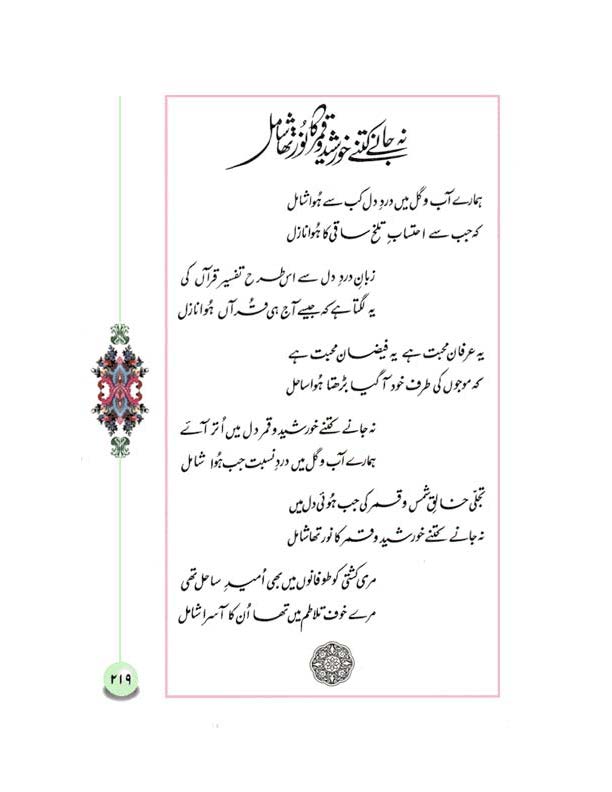 نہ جانے کتنے خورشید و قمر کا نور تھا شامل
ہمارے آب و گل میں دردِ دل کب سے ہُوا شامل
کہ جب سے احتسابِ تلخ ساقی کا ہُوا نازل
زبانِ دردِ دل سے اس طرح تفسیر قرآں کی
یہ لگتا ہے کہ جیسے آج ہی قُرآں ہُوا نازل
یہ عرفانِ محبت ہے یہ فیضانِ محبت ہے
کہ موجوں کی طرف خود آگیا بڑھتا ہُوا ساحل
نہ جانے کتنے خورشید و قمر دل میں اُتر آئے
ہمارے آب و گل میں دردِ نسبت جب ہُوا شامل
تجلی خالقِ شمس و قمر کی جب ہُوئی دل میں
نہ جانے کتنے خورشید و قمر کا نور تھا شامل
مری کشتی کو طوفانوں میں بھی اُمیدِ ساحل تھی
مرے خوف تلاطم میں تھا اُن کا آسرا شامل
۲۱۹